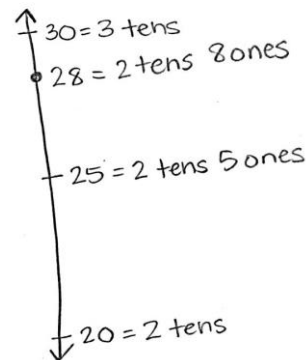 30 = 3 tens
28 = 2 tens 8 ones
25 = 2 tens 5 ones
20 = 2 tens